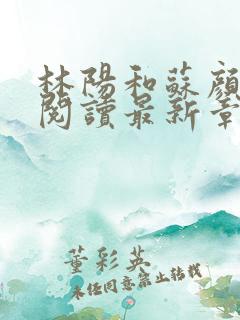 林陽和蘇顏
閱讀最新章
董彩英
未經同意禁止轉載